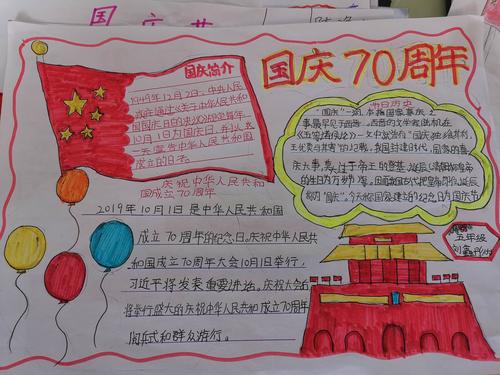 国庆
国庆70周年
国庆简介
1949年12月2日，中央人民
政府通过《关于中华人民共和
国国庆日的决议》规定每年
10月1日为国庆日，并以这
一天宣告中华人民共和国
成立的日子。
节日历史
"国庆"一词，本指国家喜庆之
事最早见于西晋。西晋的文学家陆机在
《五等诸侯论》一文中就曾有"国庆独飨其利，
主忧莫与其害"的记载，我国封建时代，国家的喜
庆大事，莫过于帝王的登基、诞辰
的生日为万岁
称为"国庆"。今天称国家建立的纪念日为国庆节
庆祝中华人民共和
国成立70周年
2019年10月1日是中华人民共和国
成立70周年的纪念日。庆祝中华人民共
和国成立70周年大会10月1日举行，
习近平将发表重要讲话。庆祝大会后
将举行盛大的庆祝中华人民共和国成立70周年
阅兵式和群众游行。
五年级